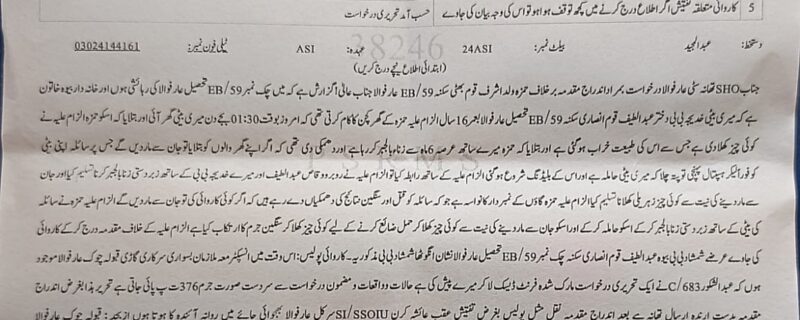 5 کاروائی متعلقہ تفتیش اگر اطلاع درج کرنے میں کچھ توقف ہوا ہو تو اس کی وجہ بیان کی جاوے حسب آمد تحریری درخواست
38246
دستخط: عبدالمجید بیلٹ نمبر: 24ASI عہدہ: ASI ٹیلی فون نمبر: 03024144161
(ابتدائی اطلاع نیچے درج کریں)
جناب SHO تھانہ سٹی عارفوالا درخواست بمراد اندراج مقدمہ برخلاف حمزہ ولد اشرف قوم بھٹی سکنہ 59/EB عارفوالا جناب عالی گزارش ہے کہ میں چک نمبر 59/EB تحصیل عارفوالا کی رہائشی ہوں اور خانہ دار بیوہ خاتون
ہے کہ میری بیٹی خدیجہ بی بی دختر عبدالطیف قوم انصاری سکنہ 59/EB تحصیل عارفوالا بعمر 16 سال الزام علیہ حمزہ کے گھر پکن کا کام کرتی تھی کہ امروز بوقت 01:30 بجے دن میری بیٹی گھر آئی اور بتلایا کہ اسکو حمزہ الزام علیہ نے
کوئی چیز کھلا دی ہے جس سے اس کی طبیعت خراب ہو گئی ہے اور بتلایا کہ حمزہ میرے ساتھ عرصہ 6 ماہ سے زنا بالجبر کر رہا ہے اور دھمکی دی تھی کہ اگر اپنے گھر والوں کو بتلایا تو جان سے مار دیں گے جس پر سائلہ اپنی بیٹی
کو فوراً لیکر ہسپتال پہنچی تو پتہ چلا کہ میری بیٹی حاملہ ہے اور اس کے بلیڈنگ شروع ہو گئی الزام علیہ کے ساتھ رابطہ کیا تو الزام علیہ نے روبرو وقاص عبدالطیف اور میرے خدیجہ بی بی کے ساتھ زبردستی زنا بالجبر کرنا تسلیم کیا اور جان
سے مار دینے کی نیت سے کوئی چیز زہریلی کھلانا تسلیم کیا الزام علیہ حمزہ گاؤں کے نمبردار کا نواسہ ہے جو کہ سائلہ کو قتل اور سنگین نتائج کی دھمکیاں دے رہے ہیں کہ اگر کوئی کاروائی کی تو جان سے مار دیں گے الزام علیہ حمزہ نے سائلہ
کی بیٹی کے ساتھ زبردستی زنا بالجبر کر کے اسکو حاملہ کر کے اور اسکو جان سے مار دینے کی نیت سے کوئی چیز کھلا کر حمل ضائع کرنے کے لیے کوئی چیز کھلا کر سنگین جرم کا ارتکاب کیا ہے الزام علیہ کے خلاف مقدمہ درج کر کے کاروائی
کی جاوے عرضے شمشاد بی بی بیوہ عبدالطیف قوم انصاری سکنہ چک نمبر 59/EB تحصیل عارفوالا نشان انگوٹھا شمشاد بی بی مذکوریہ۔ کاروائی پولیس: اس وقت میں انسپکٹر معہ ملازمان بسواری سرکاری گاڑی قبولہ چوک عارفوالا موجود
ہوں کہ عبدالشکور 683/C نے ایک تحریری درخواست مارک شدہ فرنٹ ڈیسک لا کر میرے پیش کی ہے حالات و واقعات و مضمون درخواست سے سردست صورت جرم 376 ت پ پائی جاتی ہے تحریر ہذا بغرض اندراج
مقدمہ بدست ارندہ ارسال تھانہ ہے بعد اندراج مقدمہ نقل مثل پولیس بغرض تفتیش عقب عائشہ کرن SI/SSOIU سرکل عارفوالا بھجوائی جائے میں روانہ آئندہ کا ہوتا ہوں از بحد: قبولہ چوک عارفوالا